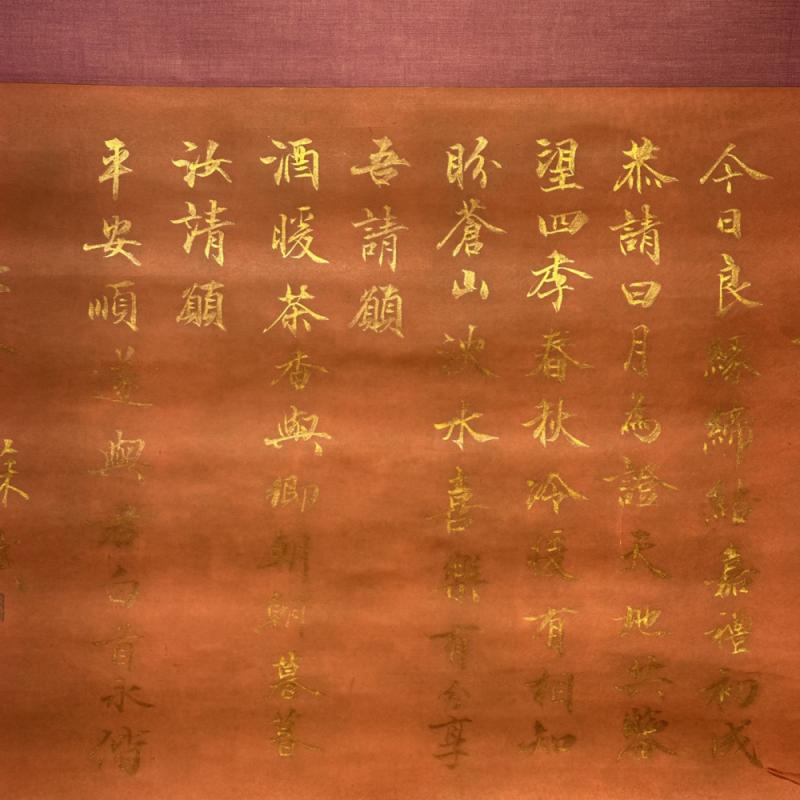 今日良緣締結嘉禮初成
恭請日月為證天地共鑒
望四季春秋冷暖有相知
盼蒼山淡水喜樂有分享
吾請願
酒暖茶香與卿朝朝暮暮
汝請願
平安順遂與君白首永偕